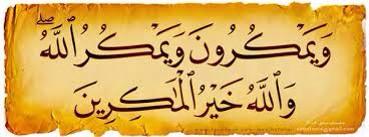 وَيَمْكُرُونَ وَيَمْكُرُ ٱللَّهُ ۖ
وَٱللَّهُ خَيْرُ ٱلْمَٰكِرِينَ